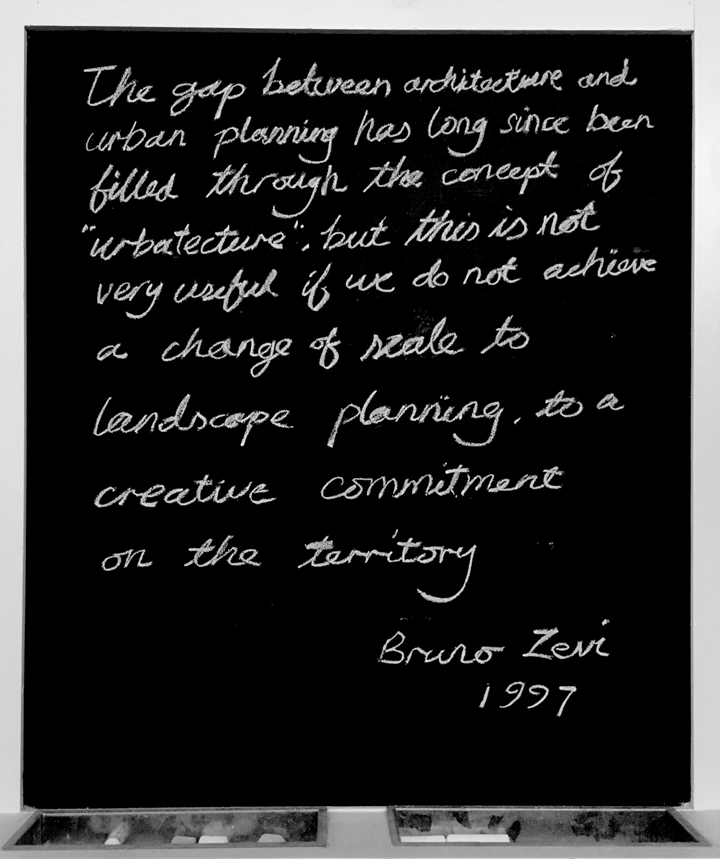 The gap between architecture and
urban planning has long since been
filled through the concept of
"urbatecture", but this is not
very useful if we do not achieve
a change of scale to
landscape planning, to a
creative commitment
on the territory
Bruno Zevi
1997